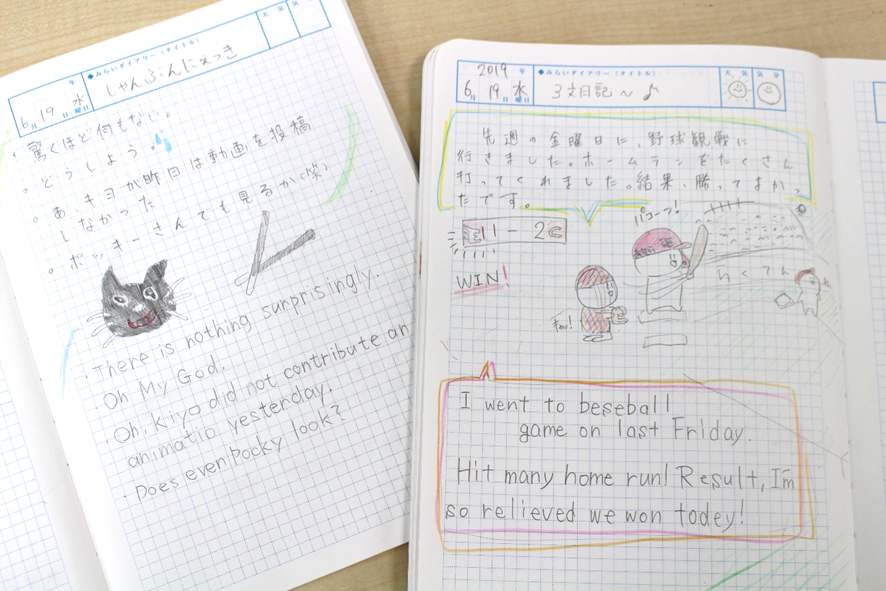 年
◆みらいダイアリー(タイトル)
天気
6月 19日 水曜日
しゃんぷんにぇっき
・驚くほど何もない。
。どうしよう。
。あ、キヨが昨日は動画を投稿
しなかった
。ポッキーさんでも見るか(笑)
・There is nothing surprisingly.
・Oh My God.
・Oh, Kiyo did not contribute an
animatio yesterday.
・Does even Pocky look?
2019年
◆みらいダイアリー(タイトル)
天気 気分
6月 19日 水曜日
3文日記〜♪
先週の金曜日に、野球観戦に
行きました。ホームランをたくさん
打ってくれました。結果、勝ってよかっ
たです。
11 - 2
WIN!
パコーン!
I went to beseball
game on last Friday.
Hit many home run! Result, I'm
so relieved we won today!